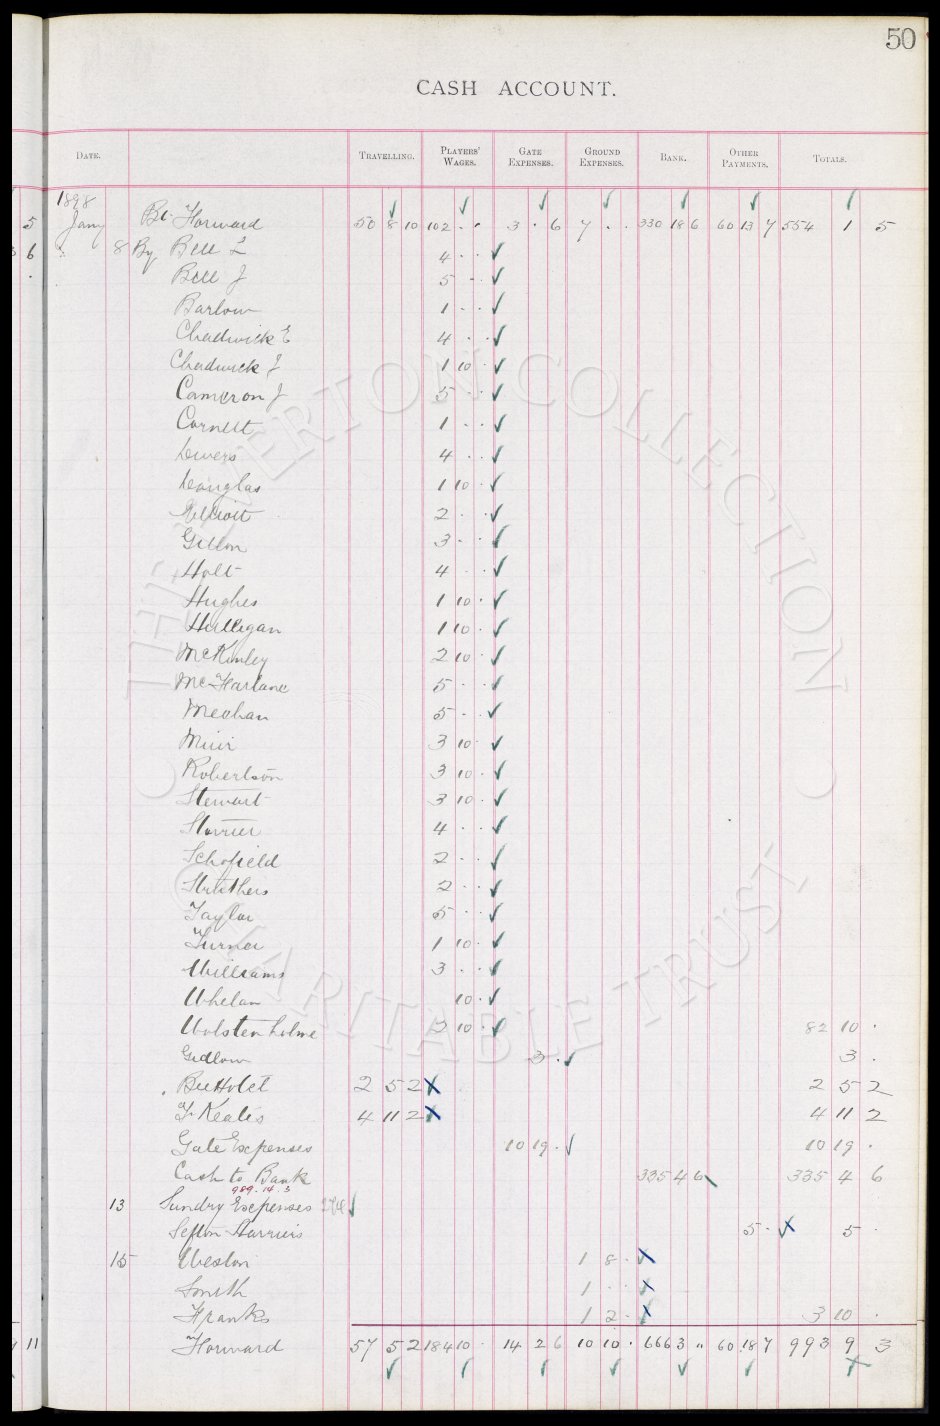 50
CASH ACCOUNT.
DATE. TRAVELLING. PLAYERS' WAGES. GATE EXPENSES. GROUND EXPENSES. BANK. OTHER PAYMENTS. TOTALS.
1898
5 Jany Bt. Forward 50 8 10 102 . . 3 . 6 7 . . 330 18 6 60 13 7 554 1 5
6 " 8 By Bell L 4 . . ✓
Bell J 5 . . ✓
Barlow 1 . . ✓
Chadwick E 4 . . ✓
Chadwick J 1 10 . ✓
Cameron J 5 . . ✓
Cornett 1 . . ✓
Divers 4 . . ✓
Douglas 1 10 . ✓
Elliott 2 . . ✓
Gillon 3 . . ✓
Holt 4 . . ✓
Hughes 1 10 . ✓
Hulligan 1 10 . ✓
McKinley 2 10 . ✓
McFarlane 5 . . ✓
Meehan 5 . . ✓
Muir 3 10 . ✓
Robertson 3 10 . ✓
Stewart 3 10 . ✓
Storrier 4 . . ✓
Schofield 2 . . ✓
Struthers 2 . . ✓
Taylor 5 . . ✓
Turner 1 10 . ✓
Williams 3 . . ✓
Whelan 10 . ✓
Wolstenholme 2 10 . ✓ 82 10 .
Gidlow 3 . ✓ 3 .
Bee Hotel 2 5 2 X 2 5 2
T. Keates 4 11 2 X 4 11 2
Gate Expenses 10 19 . ✓ 10 19 .
Cash to Bank 335 4 6 335 4 6
989.14.3
13 Sundry Expenses
Sefton Harriers 5 . X 5 .
15 Weston 1 8 . X
Smith 1 . . X
Franks 1 2 . X 3 10 .
11 Forward 57 5 2 184 10 . 14 2 6 10 10 . 666 3 " 60 18 7 993 9 3
THE EVERTON COLLECTION
CHARITABLE TRUST